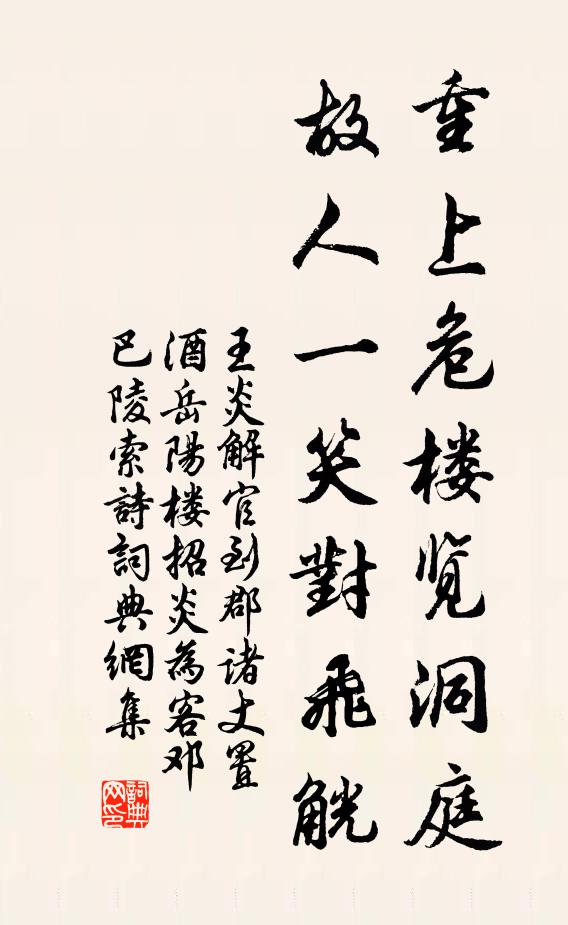 重上危楼览洞庭
故人一笑對飛觥
王炎解官到郡諸丈置
酒岳陽楼招炎為客邓
巴陵索詩詞典網集
詞典
网印